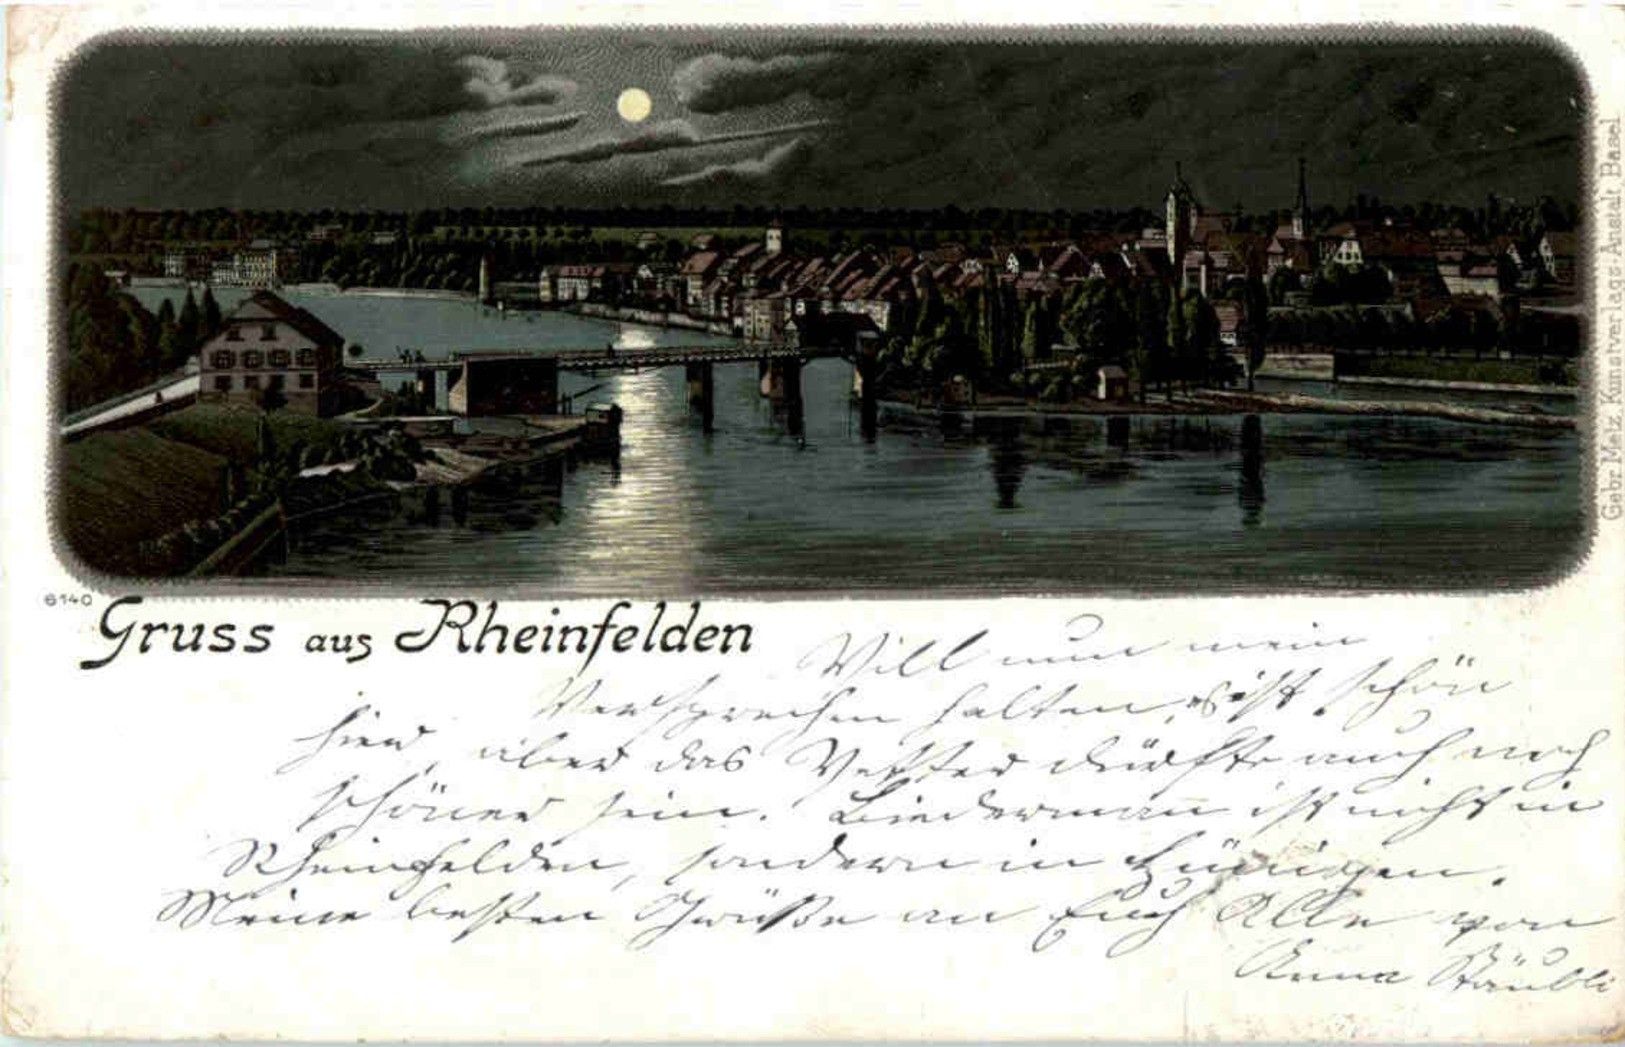 Gebr. Metz, Kunstverlags-Anstalt Basel
6140
Gruss aus Rheinfelden
Will nun mein
Versprechen halten, es ist schön
hier, aber das Wetter dürfte auch noch
schöner sein. Biedermann ist nicht in
Rheinfelden, sondern in
Meine besten Grüße an Euch Alle von
Anna Stäubli